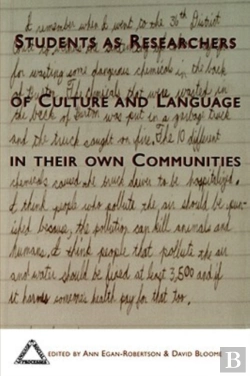 I remember when I went to the 36th District
STUDENTS AS RESEARCHERS
for wasting some dangerous chemicals in the back
OF CULTURE AND LANGUAGE
the back of was put in a garbage truck
and the truck caught on fire. The 10 different
IN THEIR OWN COMMUNITIES
chemicals caused the truck driver to be hospitalized.
I think people who pollute the air should be pun-
ished because the pollution can kill animals and
humans. I think people that pollute the air
and water should be fined at least 3,500 and if
it harms someones health pay for that too.
EDITED BY ANN EGAN-ROBERTSON & DAVID BLOOME
B